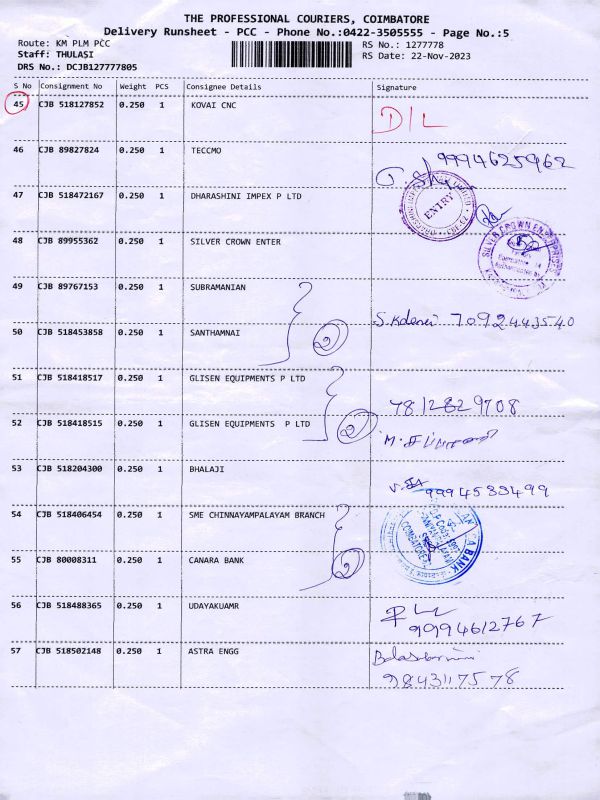 THE PROFESSIONAL COURIERS, COIMBATORE
Delivery Runsheet - PCC - Phone No.:0422-3505555 - Page No.:5
Route: KM PLM PCC
Staff: THULASI
DRS No.: DCJB127777805
RS No.: 1277778
RS Date: 22-Nov-2023
S No Consignment No Weight PCS Consignee Details Signature
45 CJB 518127852 0.250 1 KOVAI CNC D/L
46 CJB 89827824 0.250 1 TECCMO 9994625962
47 CJB 518472167 0.250 1 DHARASHINI IMPEX P LTD ENTRY
48 CJB 89955362 0.250 1 SILVER CROWN ENTER SILVER CROWN ENTERPRISES
49 CJB 89767153 1 0.250 SUBRAMANIAN
50 CJB 518453858 0.250 1 SANTHAMNAI 2 7092443540
51 CJB 518418517 0.250 1 GLISEN EQUIPMENTS P LTD 7812829708
52 CJB 518418515 0.250 1 GLISEN EQUIPMENTS P LTD 2
53 CJB 518204300 0.250 1 BHALAJI 9994583499
54 CJB 518406454 0.250 1 SME CHINNAYAMPALAYAM BRANCH
55 CJB 80008311 0.250 1 CANARA BANK 2
56 CJB 518488365 0.250 1 UDAYAKUAMR 9994612767
57 CJB 518502148 0.250 1 ASTRA ENGG 9843117578